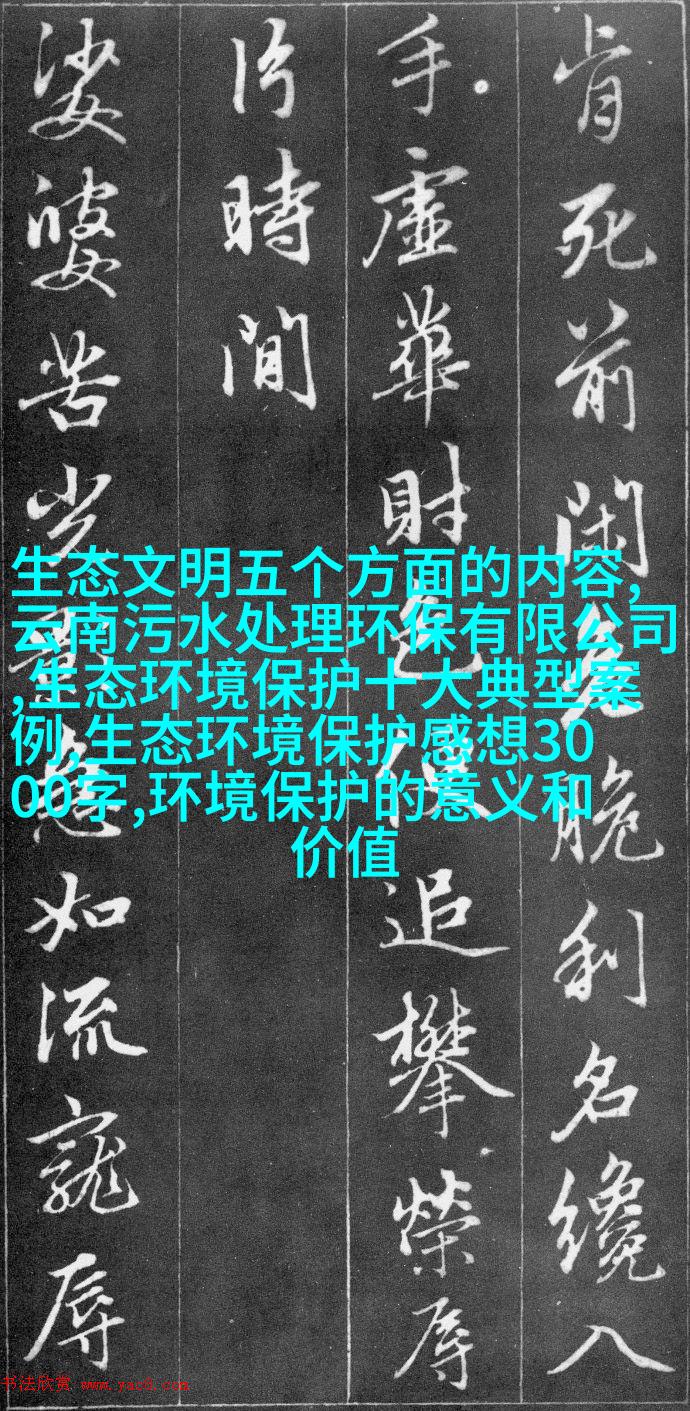 肯死前閑免脆利名纔入
手虛華財色
追攀榮辱
片時間
娑婆苦光影急如流寵辱
生态文明五个方面的内容,
云南污水处理环保有限公司
,生态环境保护十大典型案
例,生态环境保护感想30
00字,环境保护的意义和
价值
书法欣赏 www.yac8.com